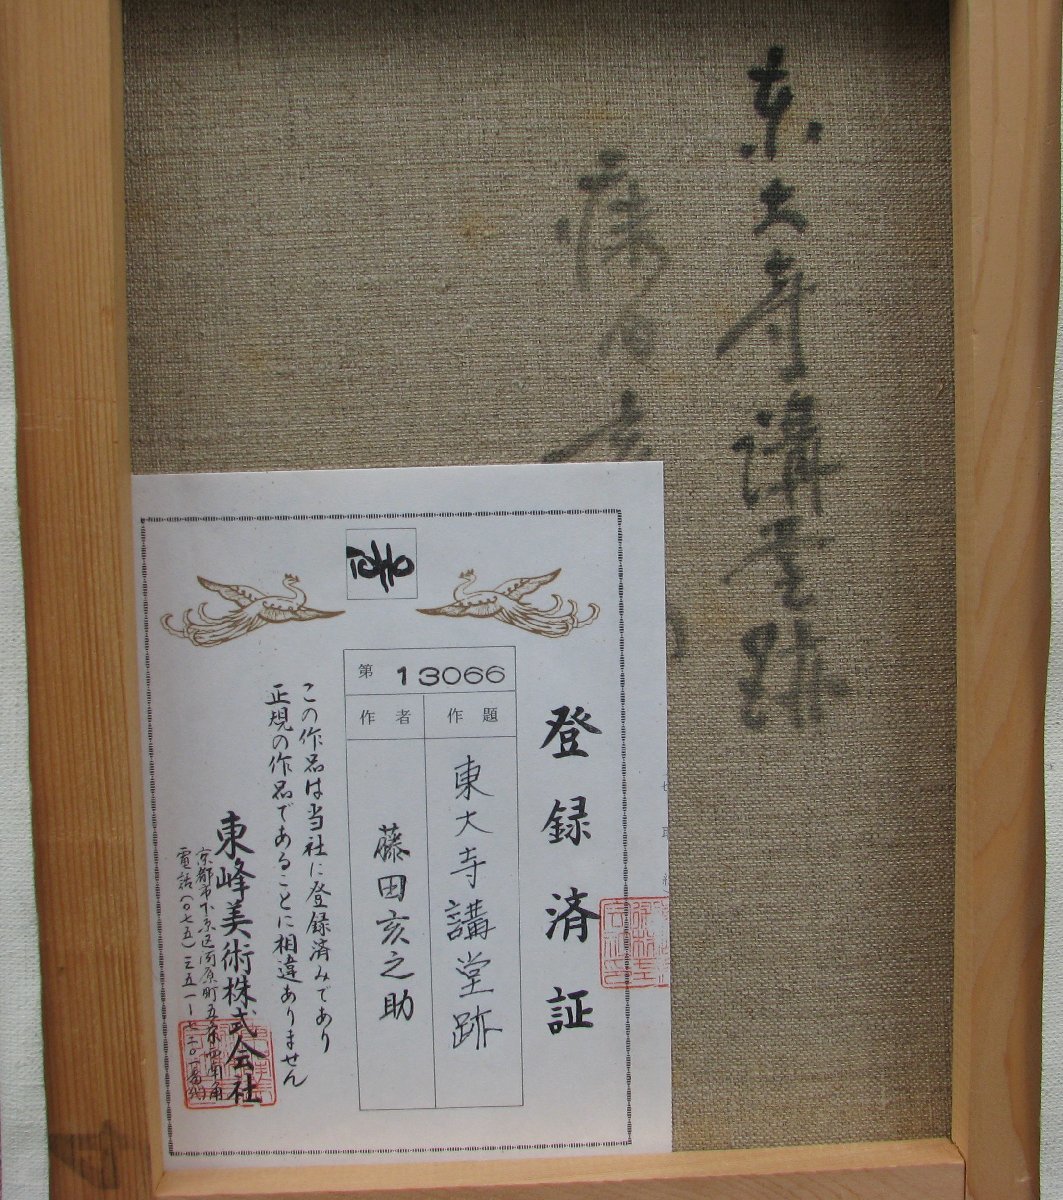 東大寺講堂跡
藤田亥
登録済証
TOHO
第 13066
作題
東大寺講堂跡
作者
藤田亥之助
この作品は当社に登録済みであり
正規の作品であることに相違ありません
東峰美術株式会社
京都市下京区河原町五条西南角
電話(〇七五)三五一-七二〇一番代